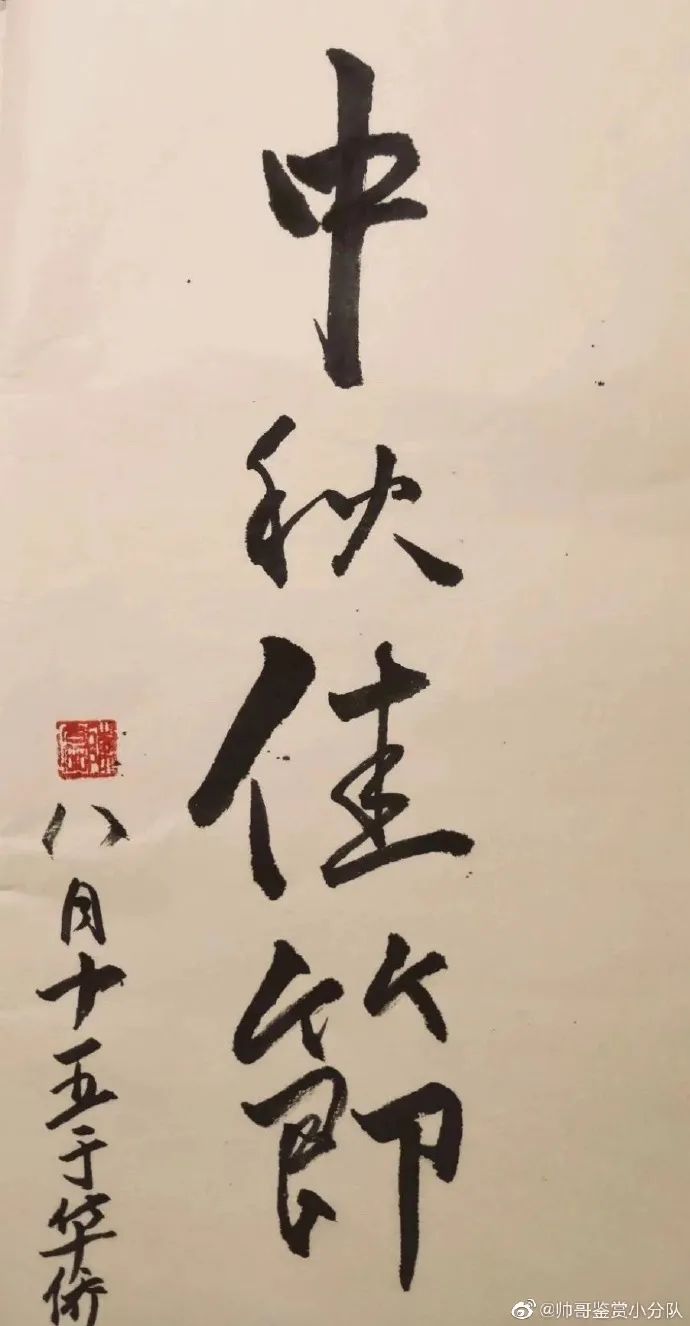 中秋佳節
八月十五于华侨
@帅哥鉴赏小分队